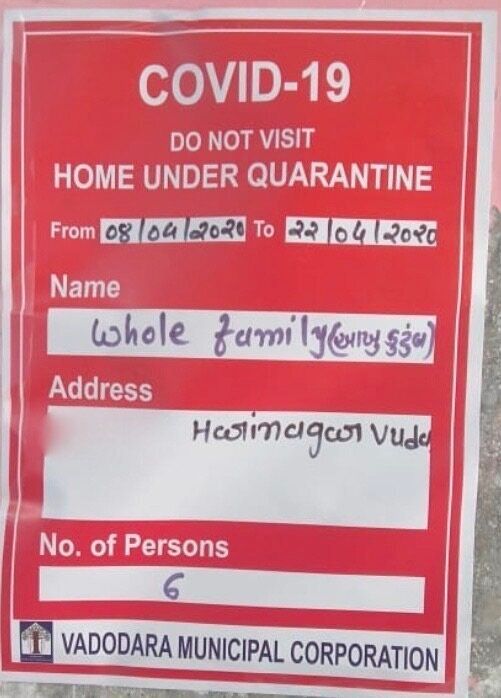 COVID-19
DO NOT VISIT
HOME UNDER QUARANTINE
From 08/04/2020 To 22/04/2020
Name
Whole family (આખુ કુટુંબ)
Address
Harinagar Vuda
No. of Persons
6
VADODARA MUNICIPAL CORPORATION